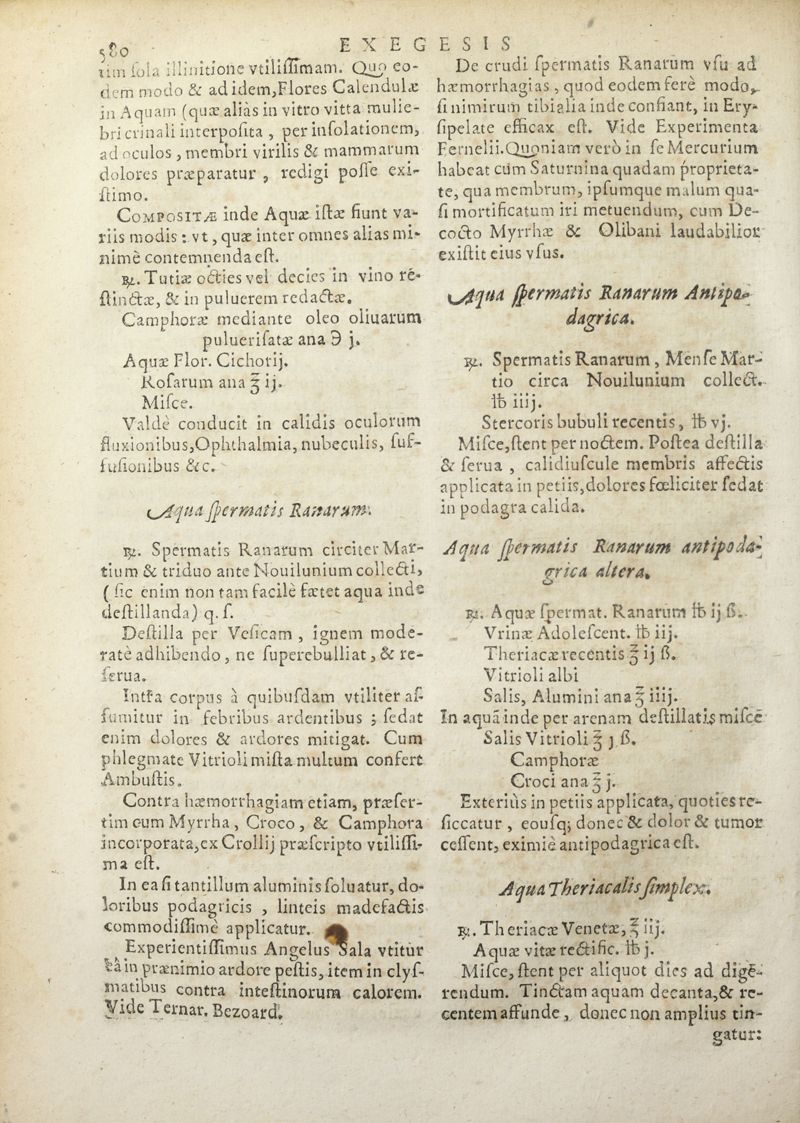 580
EXEGESIS
tim ſola illinitione vtiliſſimam. Quo eo-
dem modo & ad idem,Flores Calendulæ
in Aquam (quæ aliàs in vitro vitta mulie-
bri crinali interpoſita , per inſolationem,
ad oculos , membri virilis & mammarum
dolores præparatur , redigi poſſe exi-
ſtimo.
COMPOSITÆ inde Aquæ iſtæ fiunt va-
riis modis : vt , quæ inter omnes alias mi-
nimè contemnenda eſt.
℞. Tutiæ octies vel decies in vino re-
ſtinctæ, & in puluerem redactæ.
Camphoræ mediante oleo oliuarum
puluerifatæ ana ℈ j.
Aquæ Flor. Cichorij.
Roſarum ana ℥ ij.
Miſce.
Valdè conducit in calidis oculorum
fluxionibus,Ophthalmia, nubeculis, ſuf-
fuſionibus &c.
Aqua ſpermatis Ranarum.
℞. Spermatis Ranarum circiter Mar-
tium & triduo ante Nouilunium collecti,
( ſic enim non tam facilè fætet aqua inde
deſtillanda) q. ſ.
Deſtilla per Veſicam , ignem mode-
ratè adhibendo , ne ſuperebulliat , & re-
ſerua.
Intra corpus à quibuſdam vtiliter aſ-
ſumitur in febribus ardentibus ; ſedat
enim dolores & ardores mitigat. Cum
phlegmate Vitrioli miſta multum confert
Ambuſtis.
Contra hæmorrhagiam etiam, præſer-
tim cum Myrrha , Croco , & Camphora
incorporata,ex Crollij præſcripto vtiliſſi-
ma eſt.
In ea ſi tantillum aluminis ſoluatur, do-
loribus podagricis , linteis madefactis
commodiſſimè applicatur.
Experientiſſimus Angelus Sala vtitur
ea in prænimio ardore peſtis, item in clyſ-
matibus contra inteſtinorum calorem.
Vide Ternar. Bezoard.
De crudi ſpermatis Ranarum vſu ad
hæmorrhagias , quod eodem ferè modo,
ſi nimirum tibialia inde confiant, in Ery-
ſipelate efficax eſt. Vide Experimenta
Fernelii. Quoniam verò in ſe Mercurium
habeat cùm Saturnina quadam proprieta-
te, qua membrum, ipſumque malum qua-
ſi mortificatum iri metuendum, cum De-
cocto Myrrhæ & Olibani laudabilior
exiſtit eius vſus.
Aqua ſpermatis Ranarum Antipo-
dagrica.
℞. Spermatis Ranarum , Menſe Mar-
tio circa Nouilunium collect.
℔ iiij.
Stercoris bubuli recentis , ℔ vj.
Miſce,ſtent per noctem. Poſtea deſtilla
& ſerua , calidiuſcule membris affectis
applicata in petiis,dolores fœliciter ſedat
in podagra calida.
Aqua ſpermatis Ranarum antipoda-
grica altera.
℞. Aquæ ſpermat. Ranarum ℔ ij ß.
Vrinæ Adoleſcent. ℔ iij.
Theriacæ recentis ℥ ij ß.
Vitrioli albi
Salis, Alumini ana ℥ iiij.
In aquâ inde per arenam deſtillatis miſce
Salis Vitrioli ℥ j ß.
Camphoræ
Croci ana ℥ j.
Exteriùs in petiis applicata, quoties re-
ſiccatur , eouſq; donec & dolor & tumor
ceſſent, eximiè antipodagrica eſt.
Aqua Theriacalis ſimplex.
℞. Theriacæ Venetæ, ℥ iij.
Aquæ vitæ rectific. ℔ j.
Miſce, ſtent per aliquot dies ad dige-
rendum. Tinctam aquam decanta,& re-
centem affunde , donec non amplius tin-
gatur: